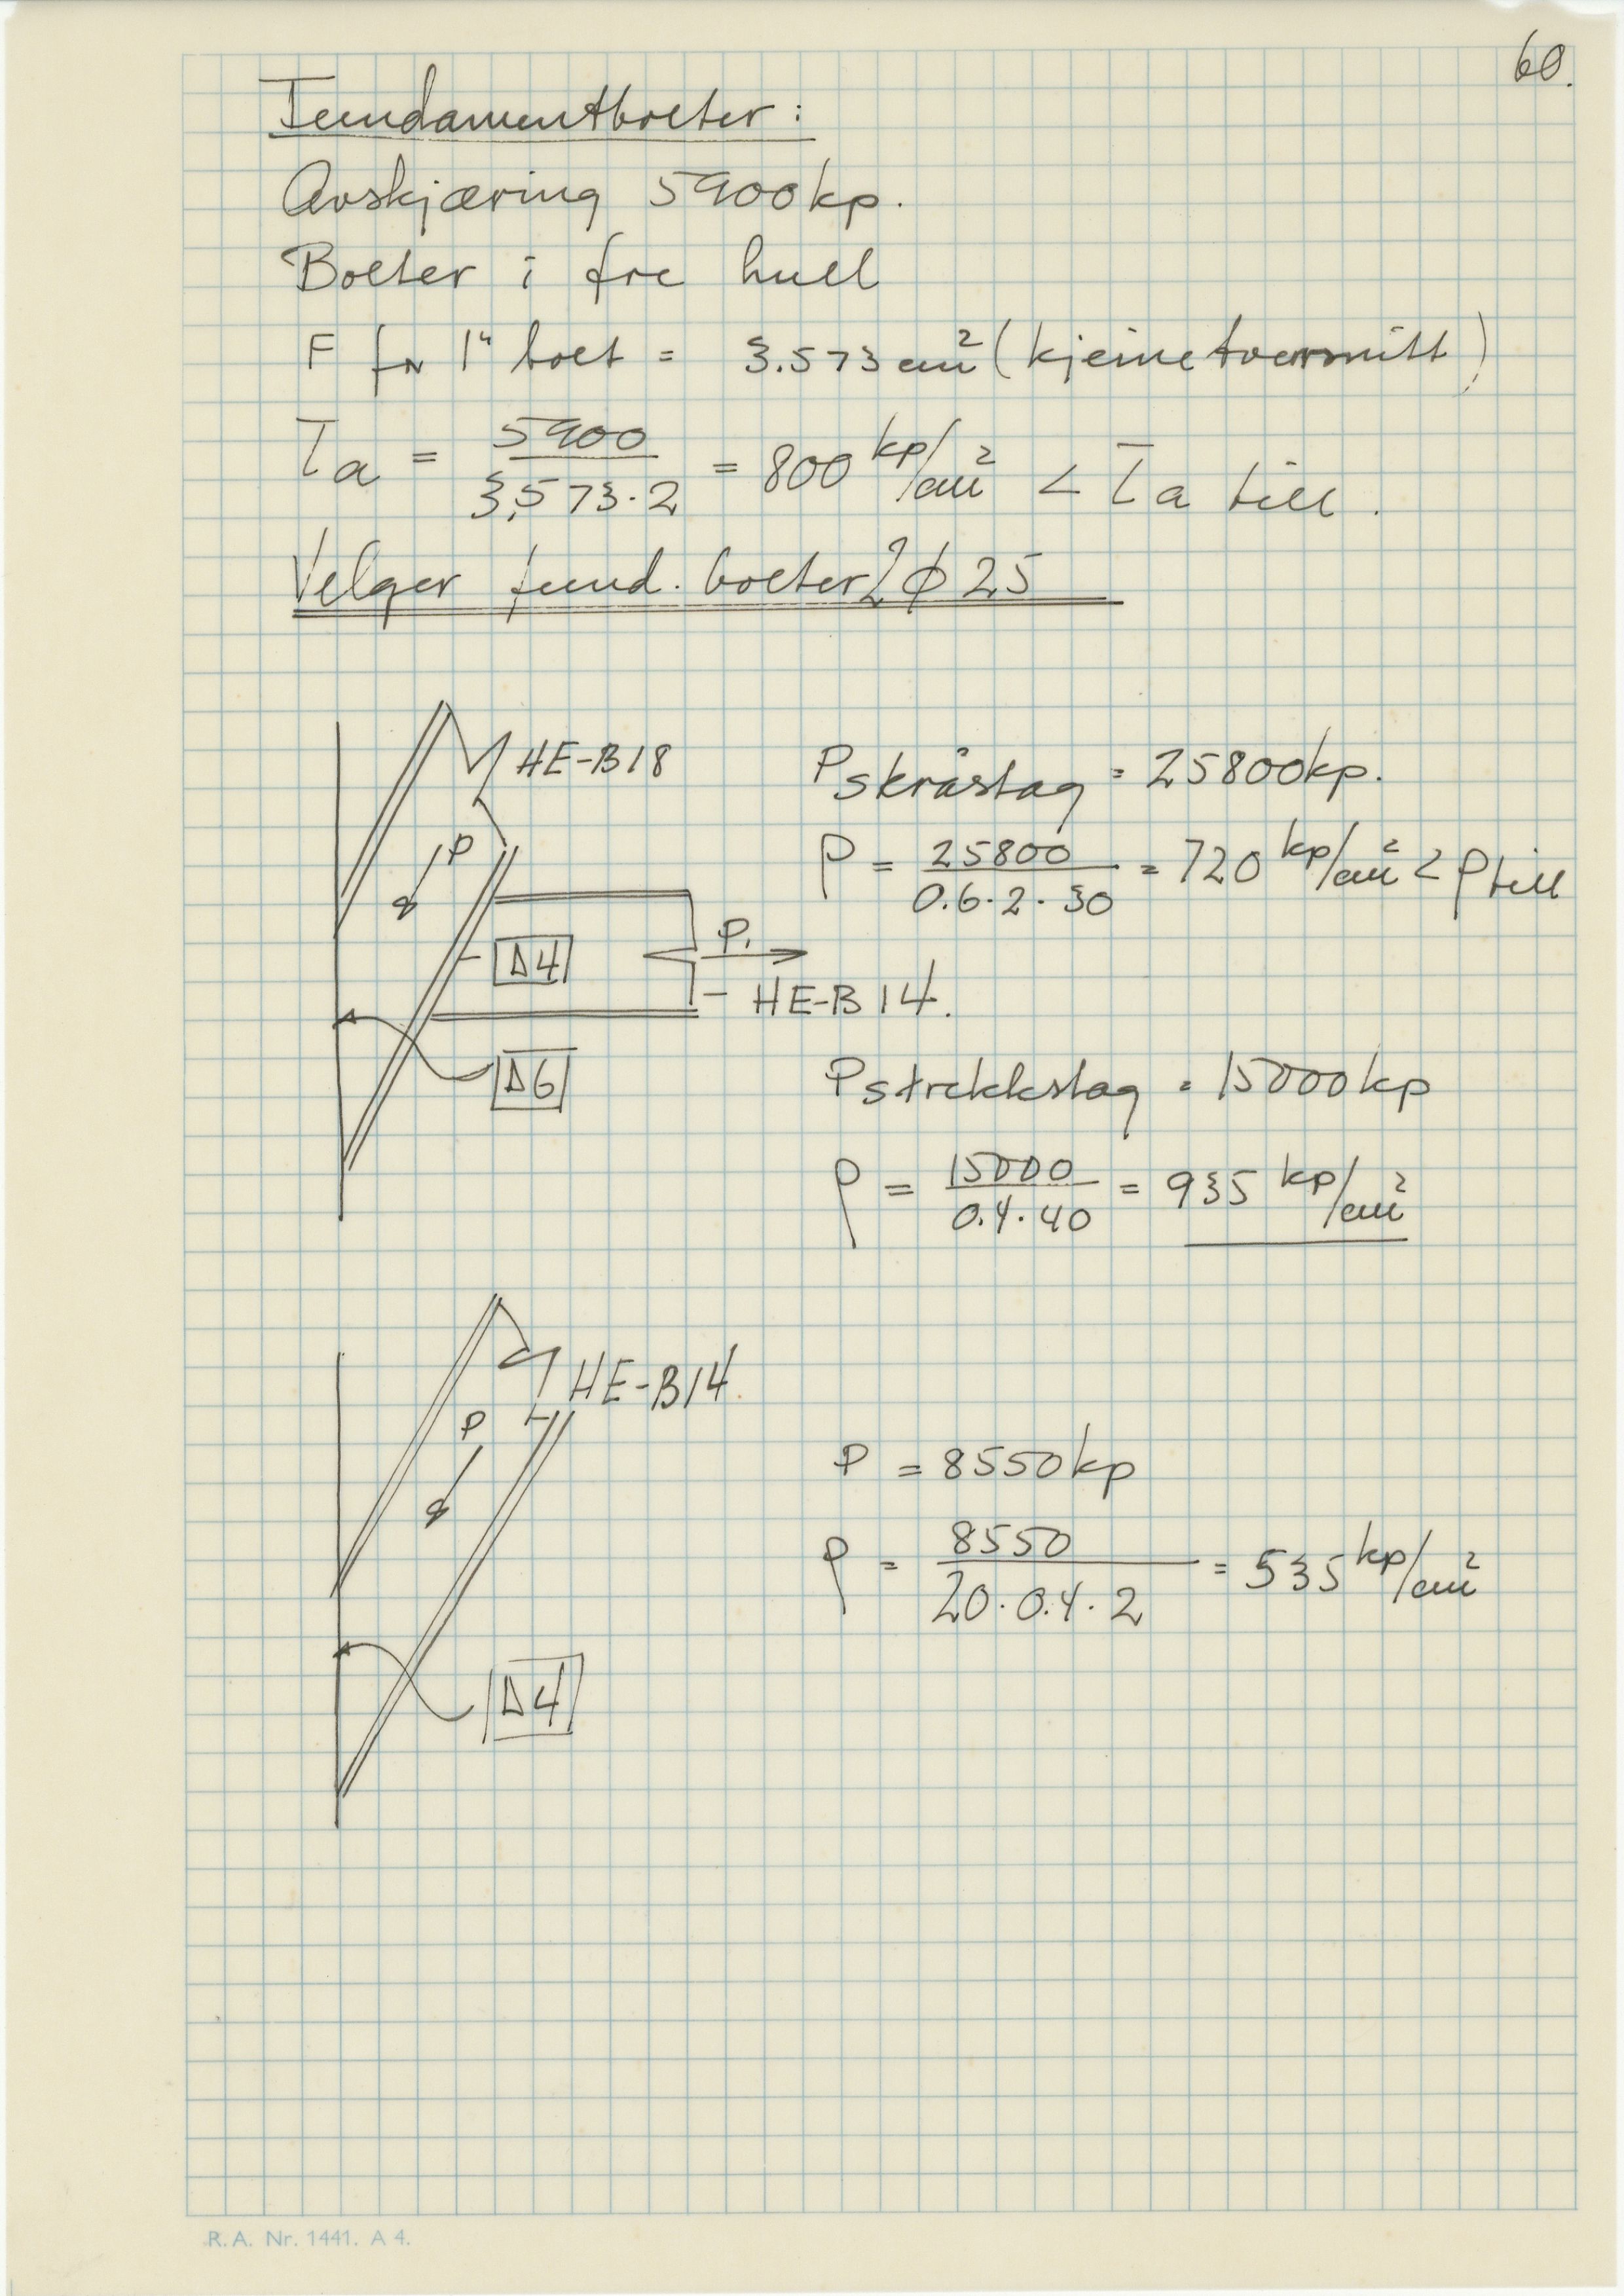 60.
Fundamentbolter:
Avskjæring 5900 kp.
Bolter i fre hull
F for 1" bolt = 3.573 cm² (kjernetverrsnitt)
τa = 5900 / 3,573·2 = 800 kp/cm² < τa till.
Velger fund. bolter 2 ϕ 25
HE-B18
P skråstag = 25800 kp.
P
ρ = 25800 / 0.6·2·30 = 720 kp/cm² < ρ till
Δ4
P₁
HE-B14.
Δ6
P strekkstag = 15000 kp
ρ = 15000 / 0.4·40 = 935 kp/cm²
HE-B14.
P
P = 8550 kp
ρ = 8550 / 20·0.4·2 = 535 kp/cm²
Δ4
R.A. Nr. 1441. A 4.